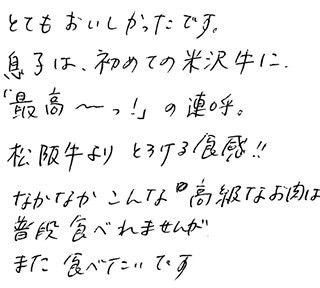 とてもおいしかったです。
息子は、初めての米沢牛に、
「最高〜っ!」の連呼。
松阪牛より とろける食感!!
なかなか こんな 高級なお肉は
普段 食べれませんが
また 食べたいです